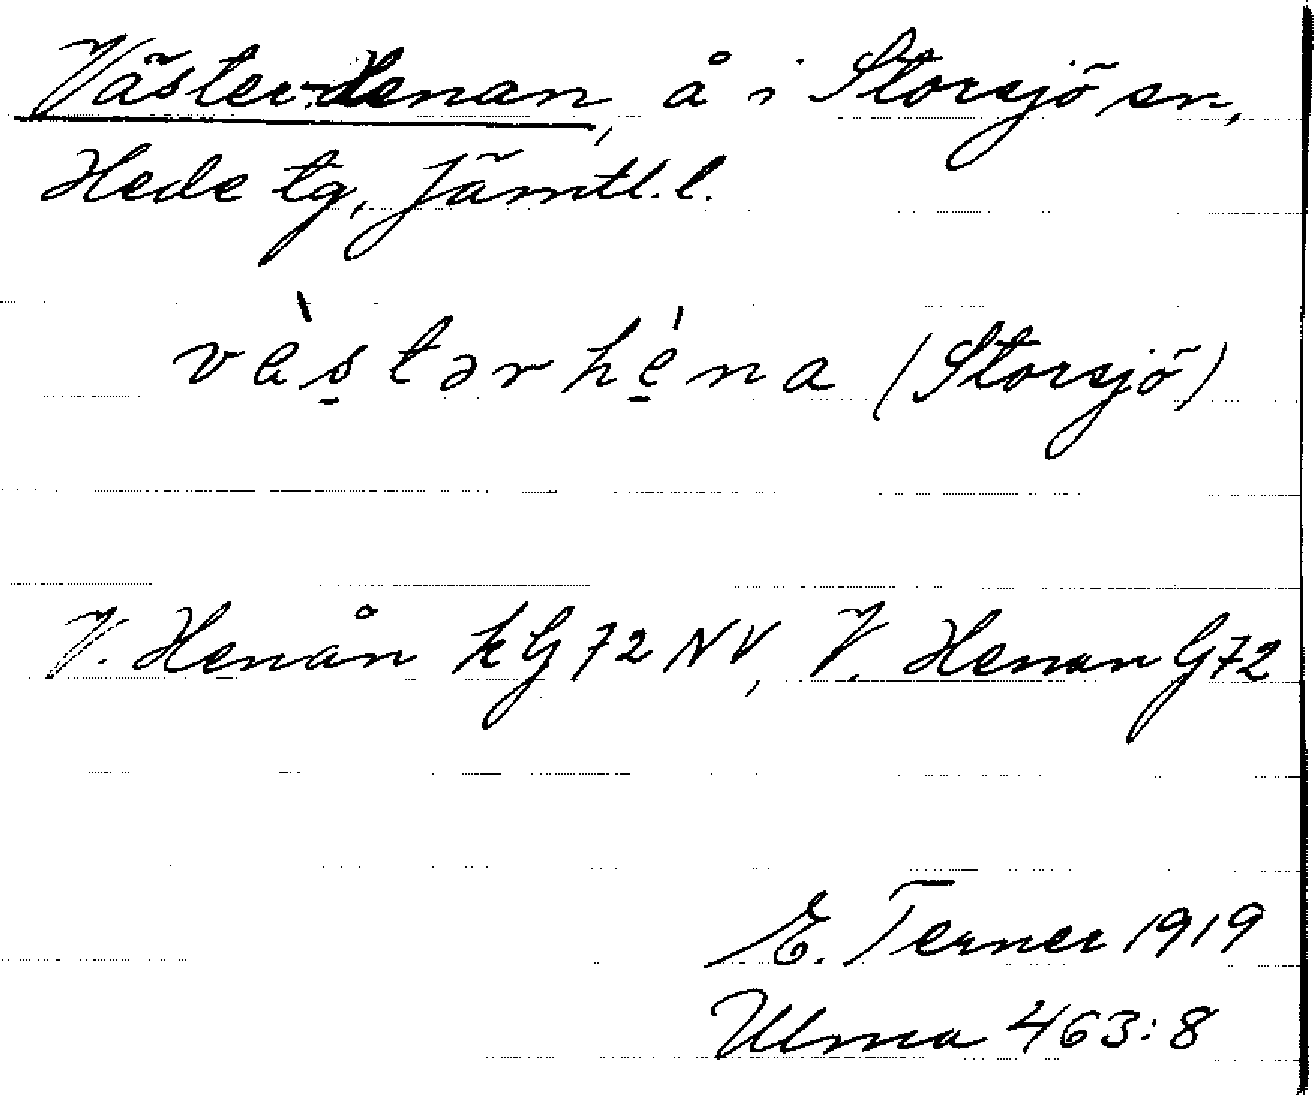 Väster-Henan, å i Storsjö sn,
Hede tg, Jämtl. l.
vȁ̀s̠tər hé̠na (Storsjö)
V. Henån kG72NV, V. Henan G72
E. Terner 1919
Ulma 463:8